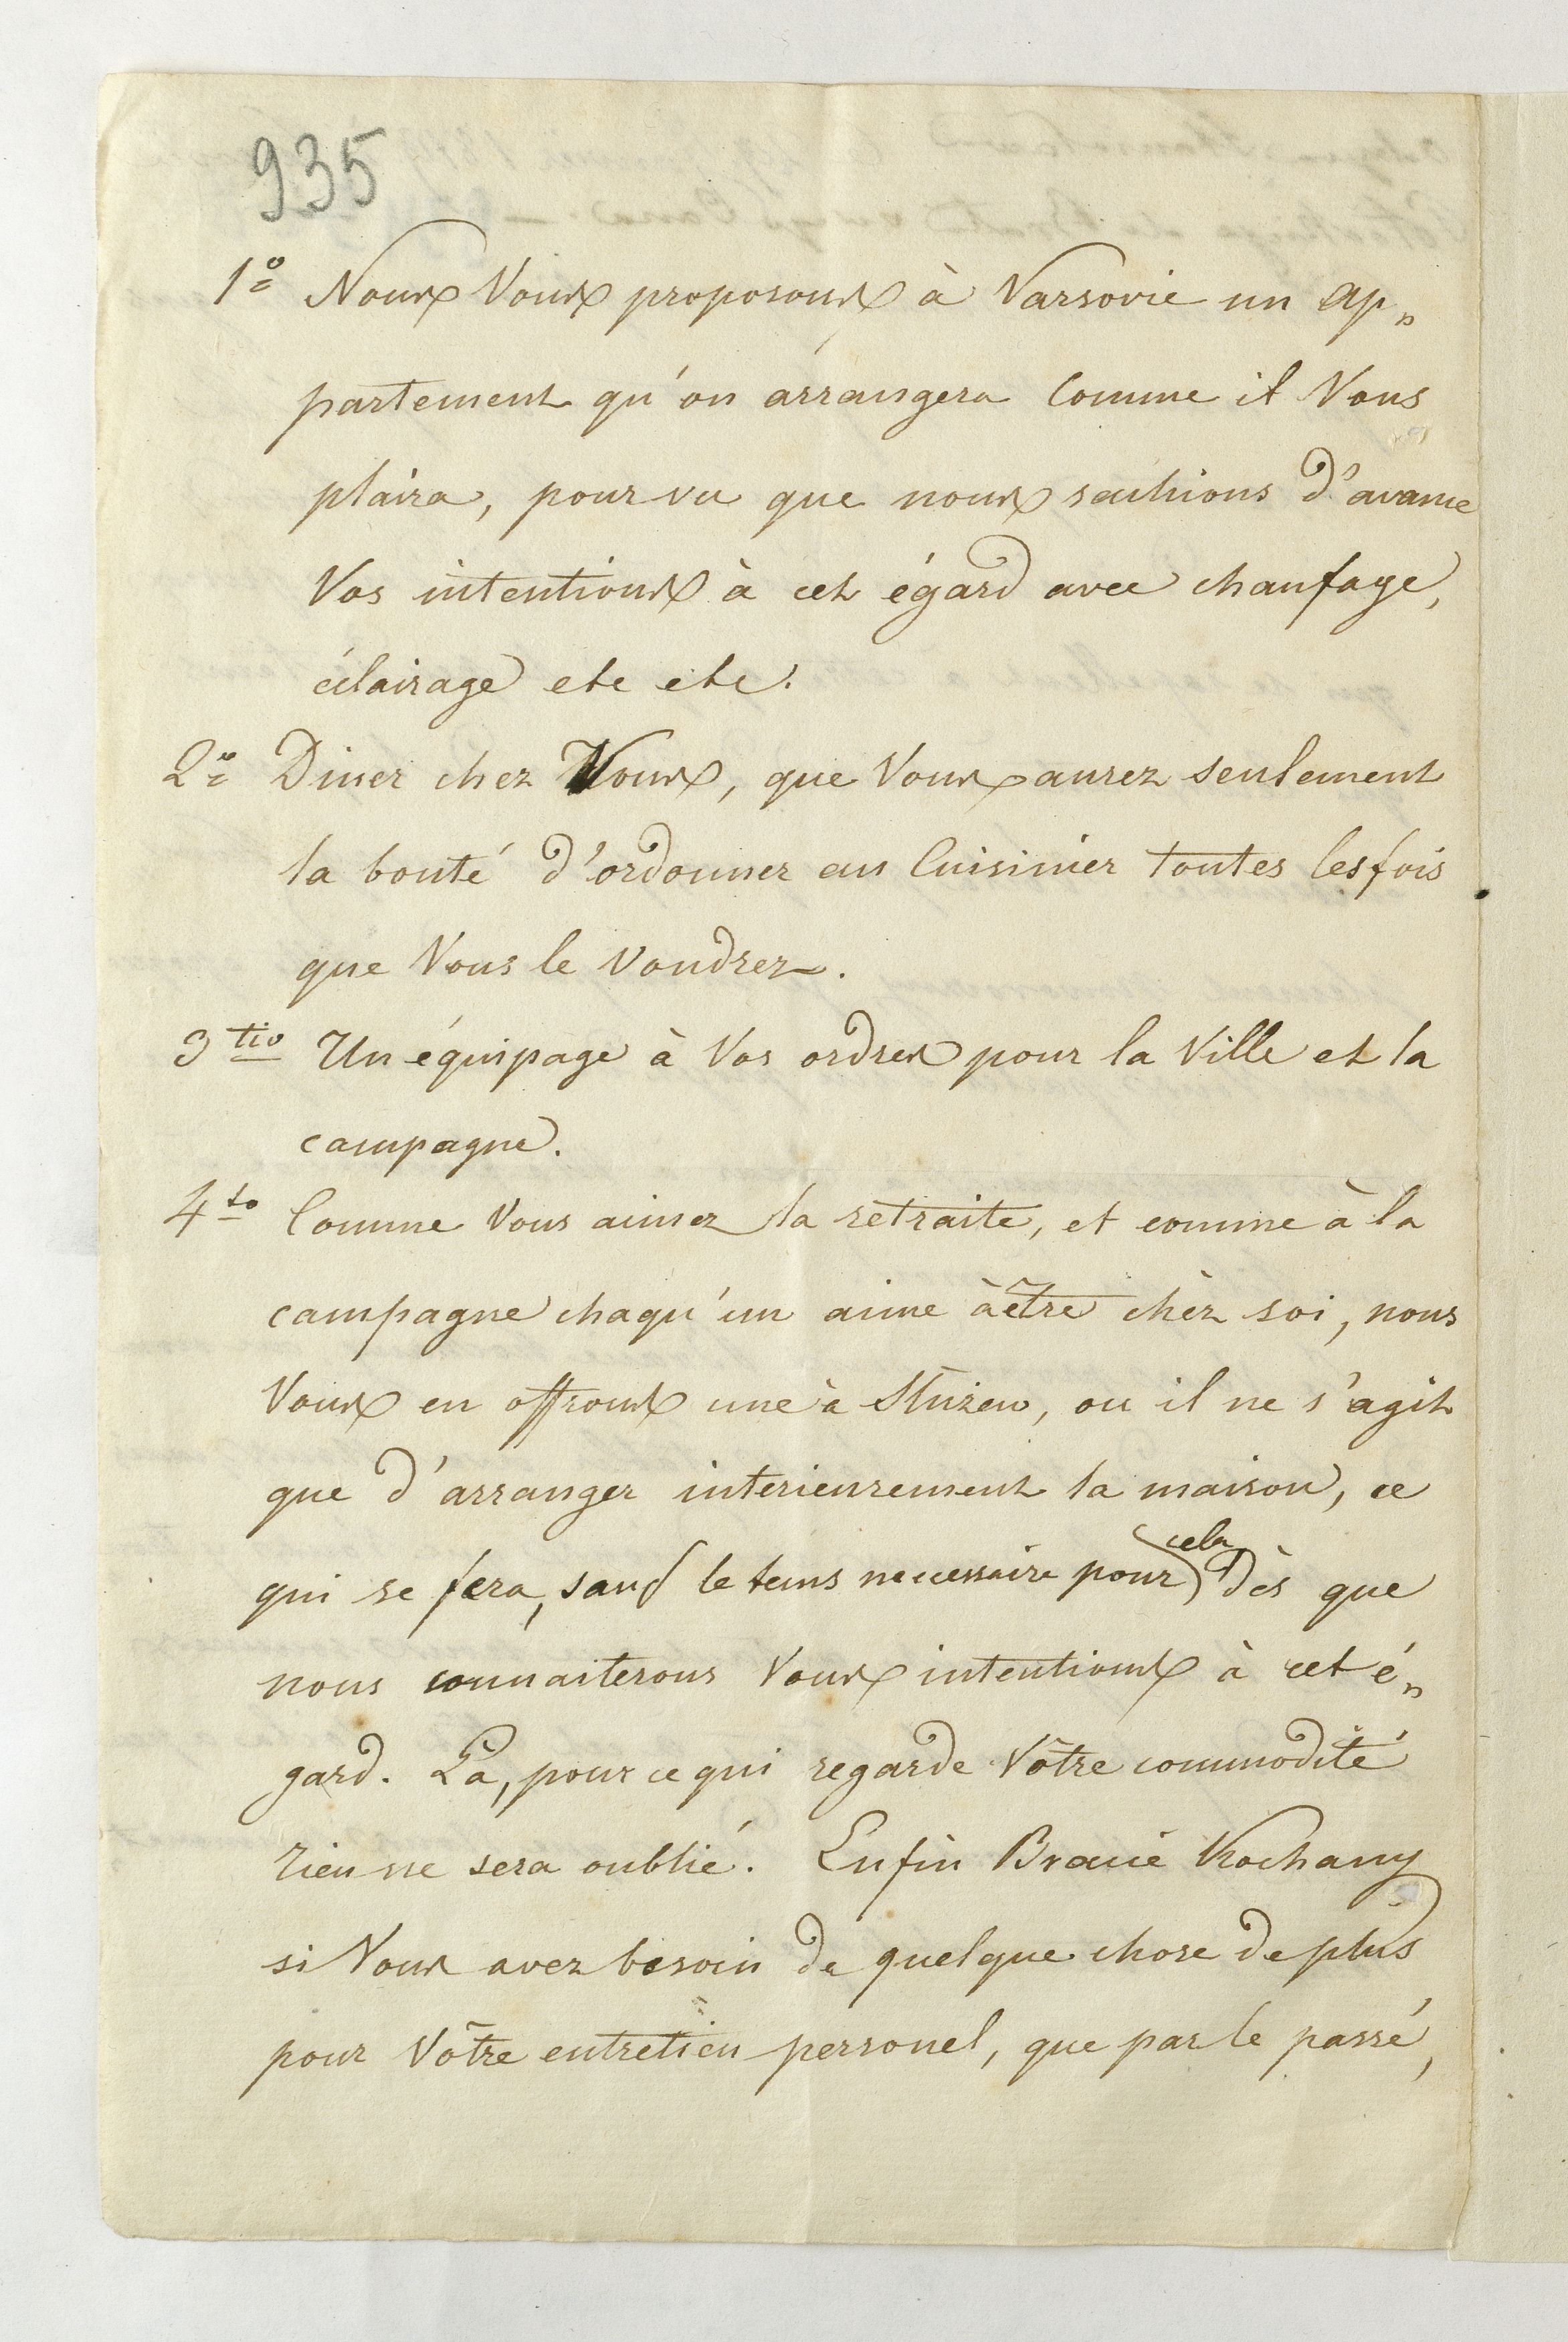 935
1º Nous Vous proposons à Varsovie un ap„
partement qu'on arrangera comme il Vous
plaira, pourvu que nous sachions d'avance
Vos intentions à cet égard avec chaufage,
éclairage etc etc.
2º Diner chez Vous, que Vous aurez seulement
la bonté d'ordonner au Cuisinier toutes les fois
que Vous le voudrez.
3tio Un équipage à Vos ordres pour la Ville et la
campagne.
4to Comme Vous aimez la retraite, et comme à la
campagne chaqu'un aime à être chèz soi, nous
Vous en offrons une à Stużew, ou il ne s'agit
que d'arranger interieurement la maison, ce
qui se fera, sauf le tems necessaire pour cela, dès que
nous connaiterons Vous intentions à cet é„
gard. Là, pour ce qui regarde Vôtre commodité
rien ne sera oublié. Enfin Bracie Kochany
si Vous avez besoin de quelque chose de plus
pour Vôtre entretien personel, que par le passé,